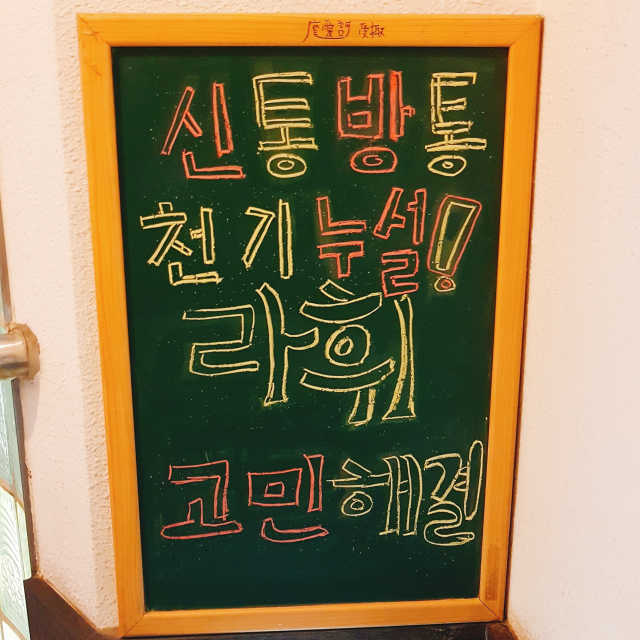 신통방통
천기누설!
라휘
고민헤결